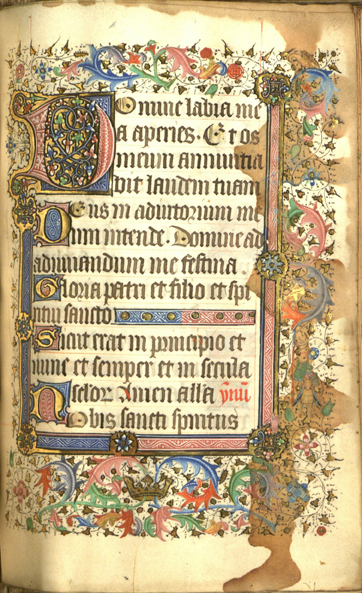 Domine labia me
a aperies. Et os
meum annuntia
bit laudem tuam
Deus in adiutorium me
um intende. Domine ad
adiuuandum me festina
Gloria patri et filio et spi
ritui sancto
Sicut erat in principio et
nunc et semper et in secula
seclor Amen alla ymn
Nobis sancti spiritus